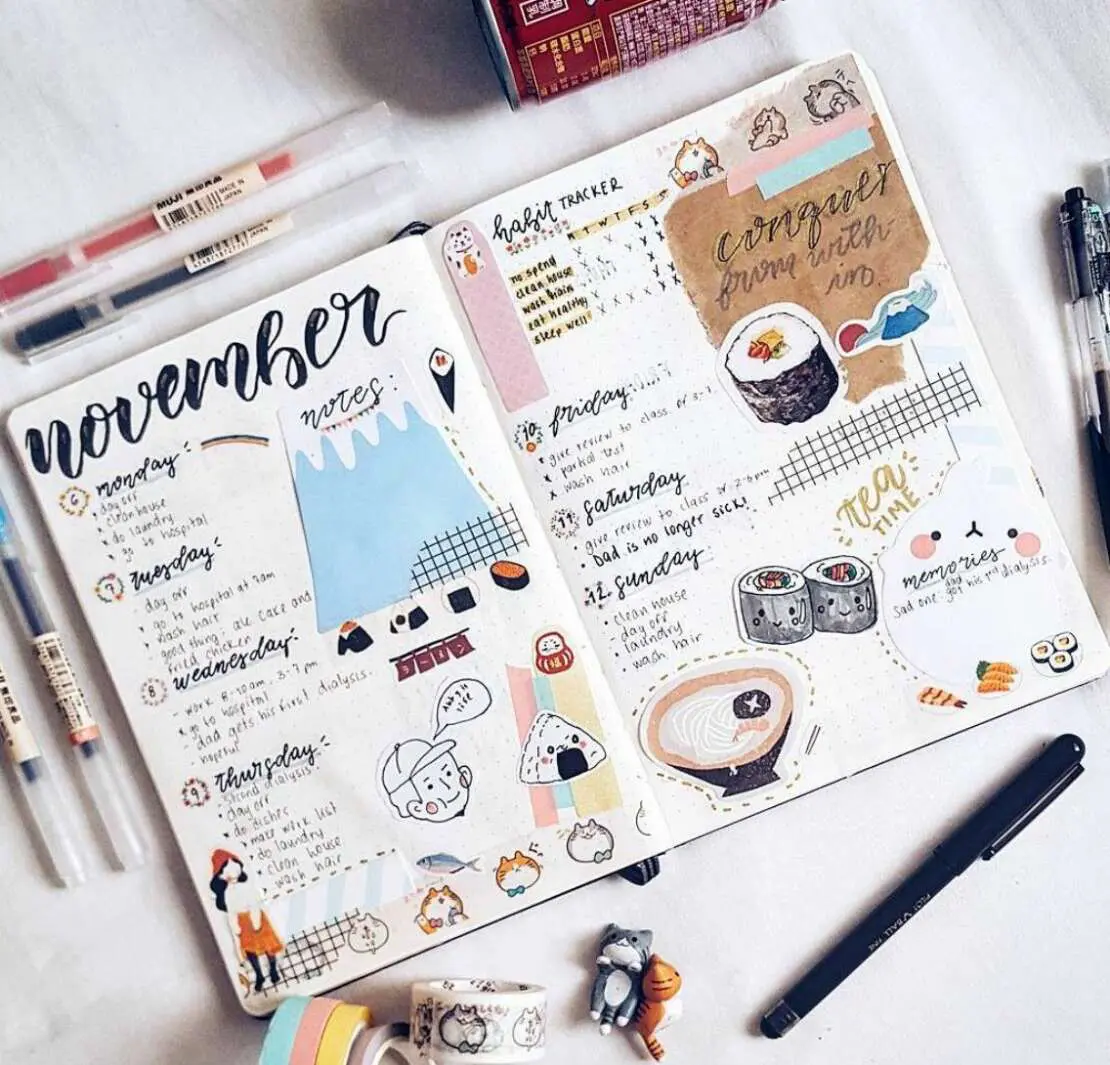 november
notes:
6 monday
day off
clean house
do laundry
go to hospital
7 tuesday
day off
go to hospital at 7am
wash hair
good thing: ate cake and
fried chicken
8 wednesday
- work 8-10am. 3-7 pm
go to hospital
- dad gets his first dialysis.
- hopeful
9 thursday
second dialysis
day off
do dishes
make work list
do laundry
clean house
wash hair
life
habit TRACKER
M T W T F S S
no spend
clean house
wash hair
eat healthy
sleep well
conquer
from with-
in.
10 friday
give review to class
partial test
wash hair
11 saturday
give review to class or 2-6pm
Dad is no longer sick!
12 sunday
- clean house
- day off
- laundry
- wash hair
tea
TIME
memories
Sad one- dad got his 1st dialysis.
MUJI 無印良品
MADE IN
JAPAN
JAPAN
PILOT V BALL